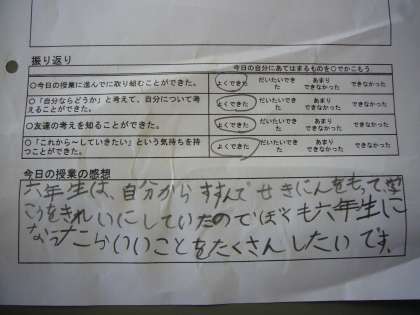 振り返り
今日の自分にあてはまるものを○でかこもう
○今日の授業に進んでに取り組むことができた。 よくできた だいたいできた あまりできなかった できなかった
○「自分ならどうか」と考えて、自分について考えることができた。 よくできた だいたいできた あまりできなかった できなかった
○友達の考えを知ることができた。 よくできた だいたいできた あまりできなかった できなかった
○「これから～していきたい」という気持ちを持つことができた。 よくできた だいたいできた あまりできなかった できなかった
今日の授業の感想
六年生は、自分からすすんで せきにんをもって学
こうをきれいにしていたのでぼくも六年生に
なったらいいことをたくさんしたいです。